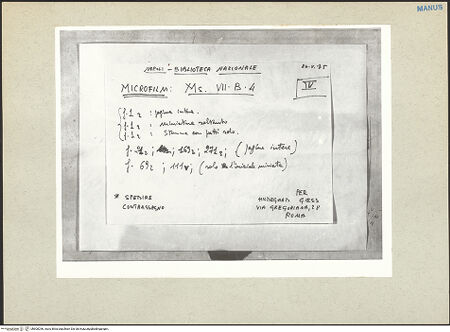 MANUS
NAPOLI - BIBLIOTECA NAZIONALE
20.V.75
MICROFILM: Ms. VII-B-4
IV
f. 1 r : pagina intera.
f. 1 r : miniatura soltanto
f. 1 r : Stemma con putti solo.
169r; 271r; (pagine intere)
f. 69r ; 111v; (solo l'iniziale miniata)
* SPEDIRE
CONTRASSEGNO
PER
HILDEGARD GIESS
VIA GREGORIANA, 28
ROMA